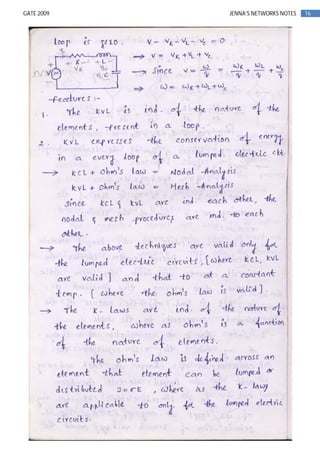 GATE 2009 JENNA'S NETWORKS NOTES 16
loop is zero. V - VR - VL - VC = 0
→ V = VR + VL + VC
→ Since V = W/q = WR/q + WL/q + WC/q
⇒ W = WR + WL + WC
-Features :-
1. The KVL is ind. of the nature of the
elements, present in a loop.
2. KVL expresses the conservation of energy
in a every loop of a lumped electric ckt.
→ KCL + Ohm's law = Nodal -Analysis
KVL + Ohm's law = Mesh -Analysis
Since KCL & KVL are ind each other, the
nodal & mesh procedures are ind. to each
other.
→ The above techniques are valid only for
the lumped electric circuits, [where KCL, KVL
are valid] and that to at a constant
temp. [where the ohm's law is valid].
→ The K-Laws are ind. of the nature of
the elements, where as Ohm's is a function
of the nature of elements.
The ohm's law is defined across an
element that element can be lumped or
distributed J = σE, where as the K-laws
are applicable to only for the lumped electric
circuits.